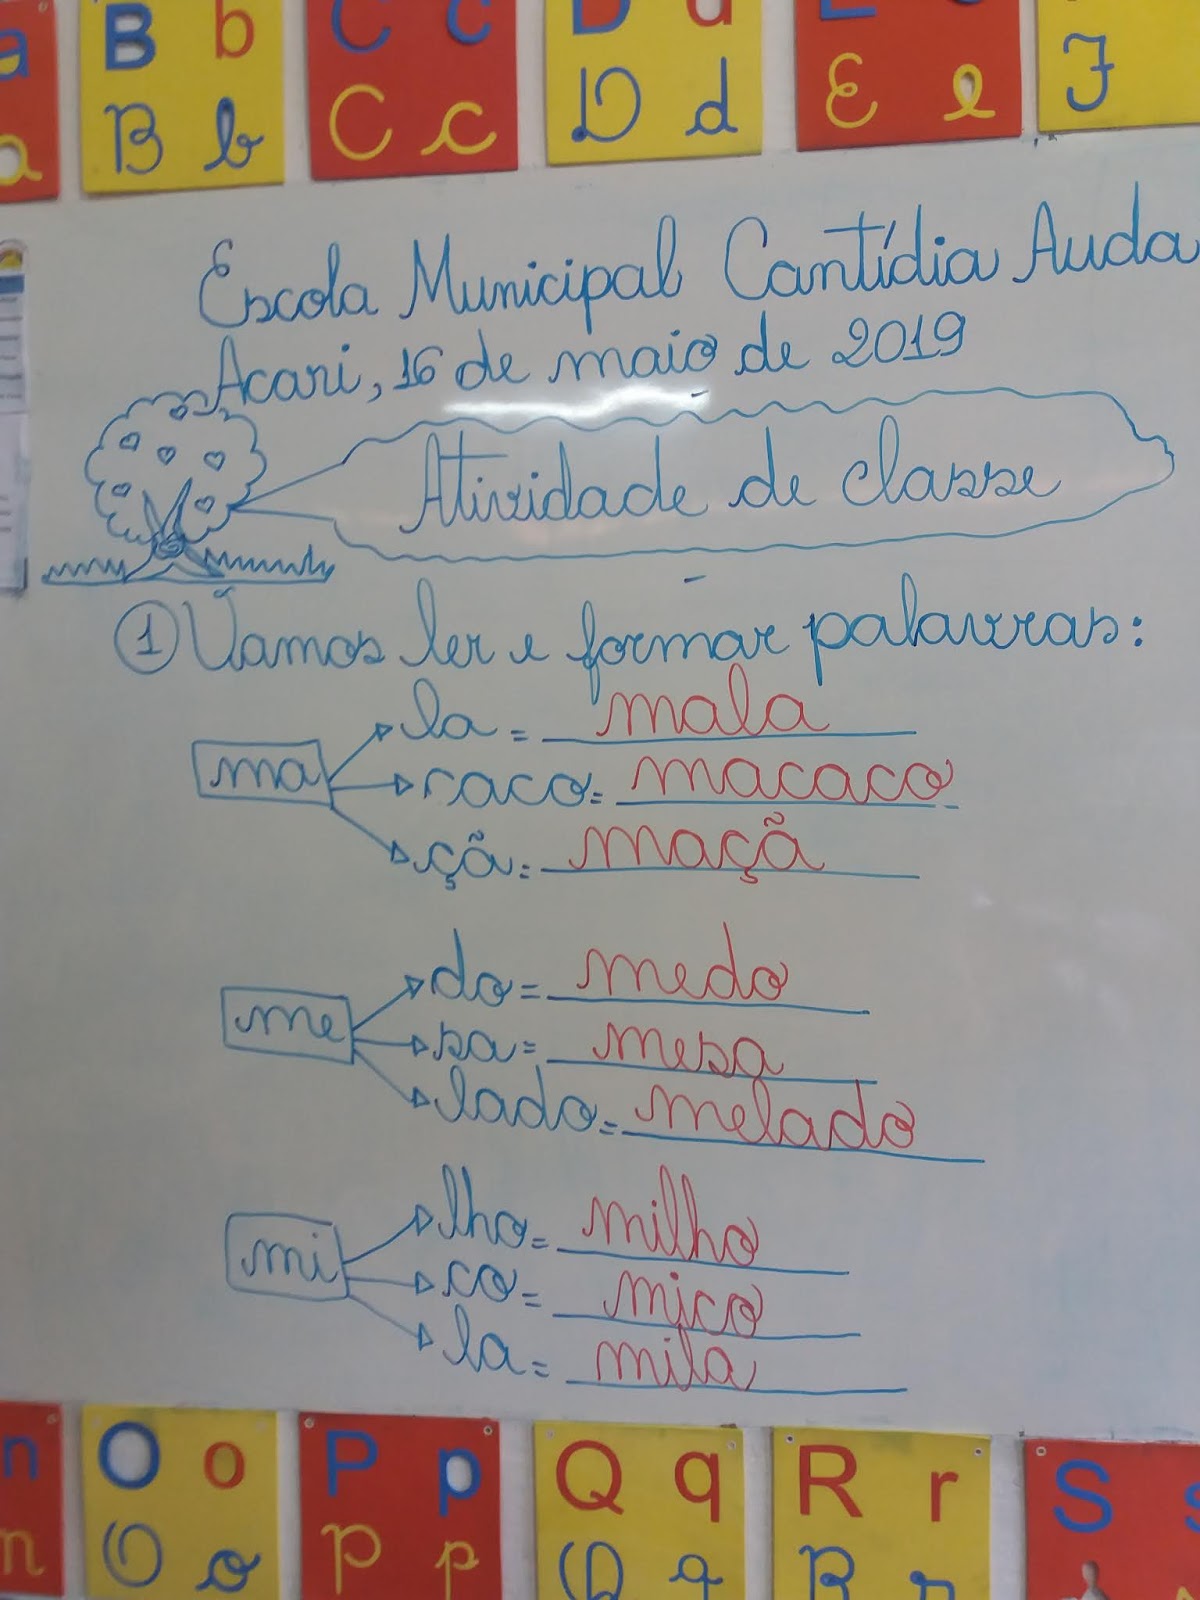 a B b C c D d
a B b C c D d E e F
Escola Municipal Cantídia Auda
Acari, 16 de maio de 2019
Atividade de classe
1 Vamos ler e formar palavras:
ma
la = mala
caco = macaco
çã = maçã
me
do = medo
sa = mesa
lado = melado
mi
lho = milho
co = mico
la = mila
n O o P p Q q R r S s
n O o P p Q q R r